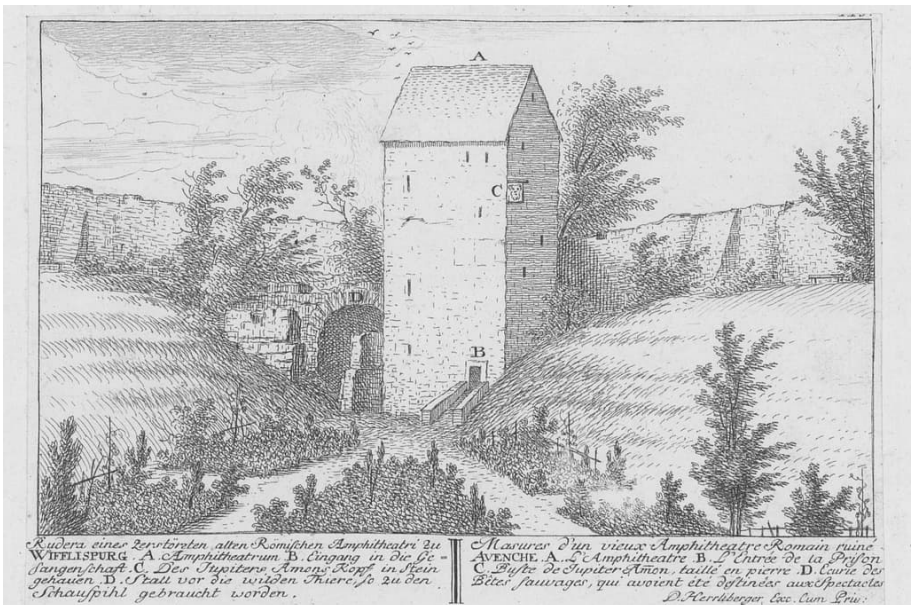 A
C
D
B
Rudera eines zerstöreten alten Römischen Amphitheatri zu
WIFFLISPURG. A. Amphitheatrum B. Eingang in die Ge
fangenschaft. C. Des Jupiters Amons Kopf in Stein
gehauen. D. Stall vor die wilden Thiere, so zu den
Schauspihl gebraucht worden.
Masures d'un vieux Amphitheatre Romain ruiné
AVENCHE. A. L'Amphitheatre B. L'Entrée de la Prison
C. Buste de Jupiter Amon, taillé en pierre. D. Ecurie des
Bêtes sauvages, qui avoient été destinées aux Spectacles
D. Herrliberger, Exc. Cum Priv: